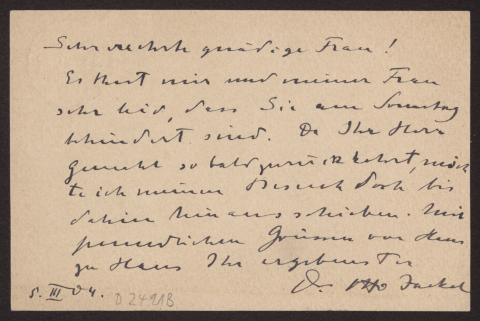 Sehr verehrte gnädige Frau!
Es thut mir und meiner Frau
sehr leid, dass Sie am Sonntag
behindert sind. Da Ihr Herr
Gemahl so bald zurückkehrt, möch
te ich meinen Besuch doch bis
dahin hinausschieben. Mit
freundlichen Grüssen von Haus
zu Haus Ihr ergebenster
Dr. Otto Jaekel
5. III 04. D 2491B